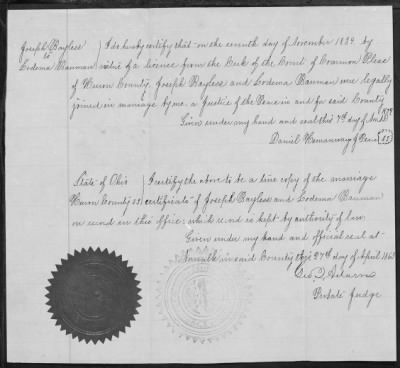 Joseph Bayless to Lodema Bauman } I do hereby certify that on the seventh day of November 1839 by
virtue of a licence from the Clerk of the Court of Common Pleas
of Huron County, Joseph Bayless and Lodema Bauman were legally
joined in marriage by me a Justice of the Peace in and for said County
Given under my hand and seal this 7th day of
Daniel Hemanway J Peace
State of Ohio } I certify the above to be a true copy of the marriage
Huron County ss } certificate of Joseph Bayless and Lodema Bauman
on record in this office; which record is kept by authority of law
Given under my hand and official seal at
Norwalk in said County this 27th day of April
Geo. Adams
Probate Judge